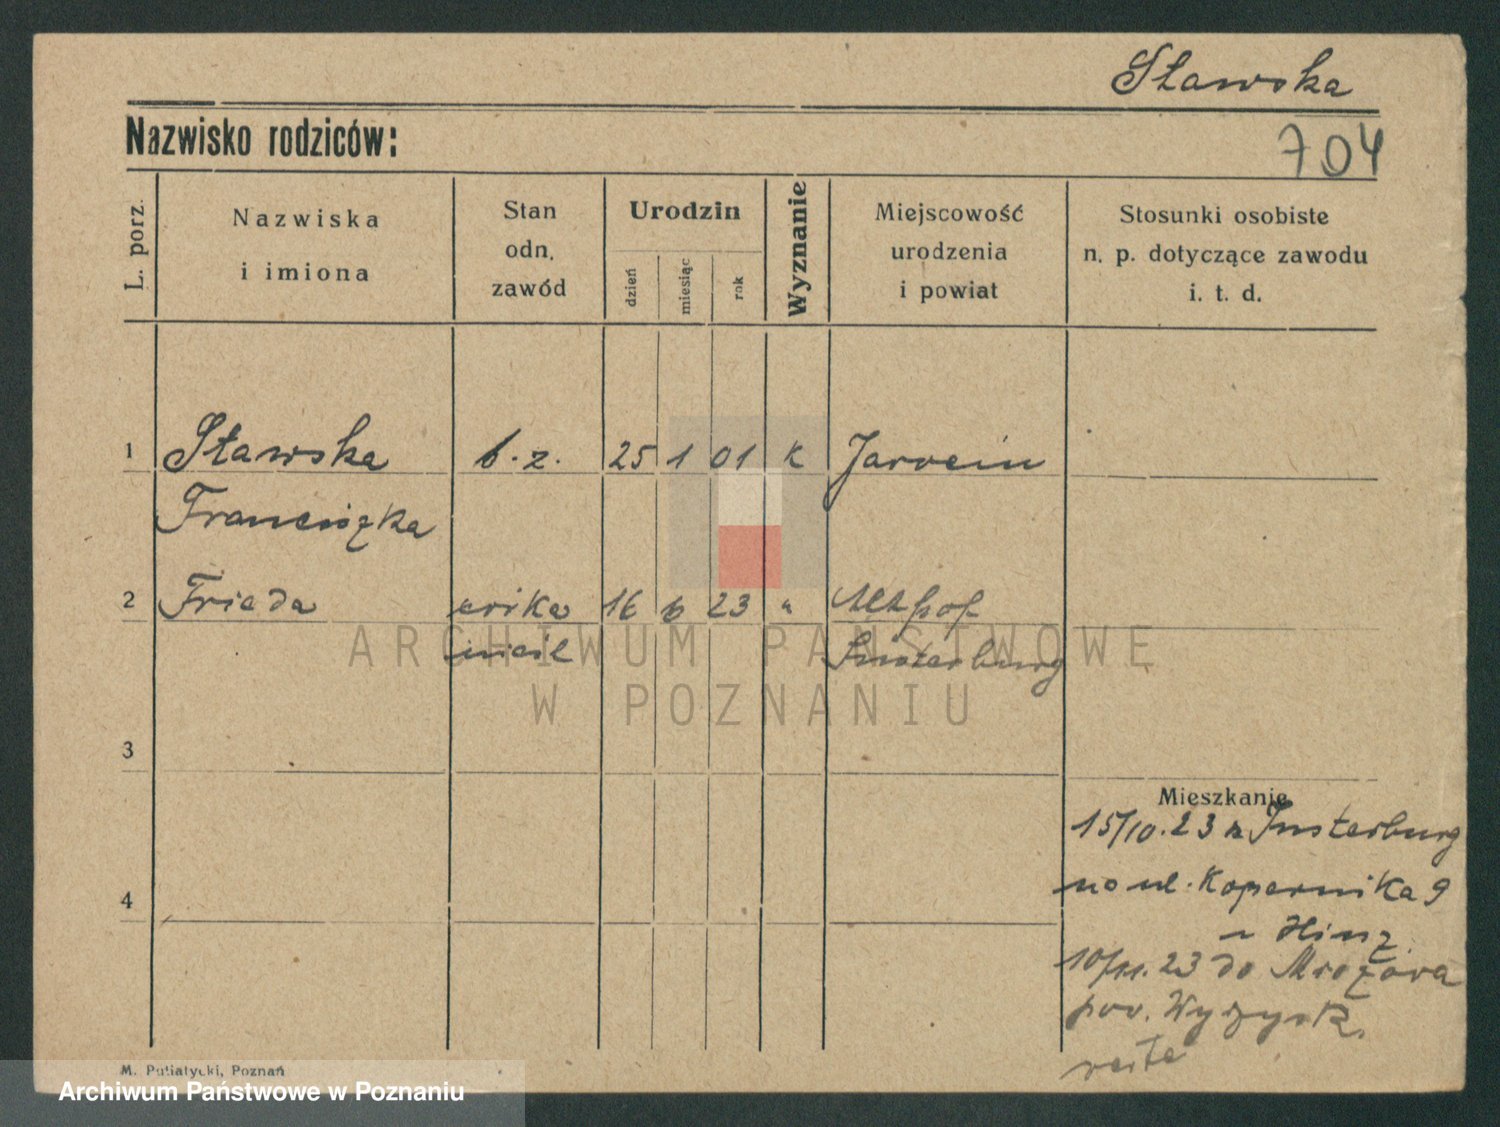 Sławska
Nazwisko rodziców:
704
L. porz.
Nazwiska
i imiona
Stan
odn.
zawód
Urodzin
dzień
miesiąc
rok
Wyznanie
Miejscowość
urodzenia
i powiat
Stosunki osobiste
n. p. dotyczące zawodu
i. t. d.
1 Sławska b.z. 25 1 01 k Jarocin
Franciszka
2 Frieda 16 6 23 "
Insterburg
3
Mieszkanie
15/10.23 z Insterburg
na ul. Kopernika 9
u Hinz
10/11.23 do Mrozowa
pow. Wyrzysk
4
M. Putiatycki, Poznań
ARCHIWUM PAŃSTWOWE
W POZNANIU
Archiwum Państwowe w Poznaniu